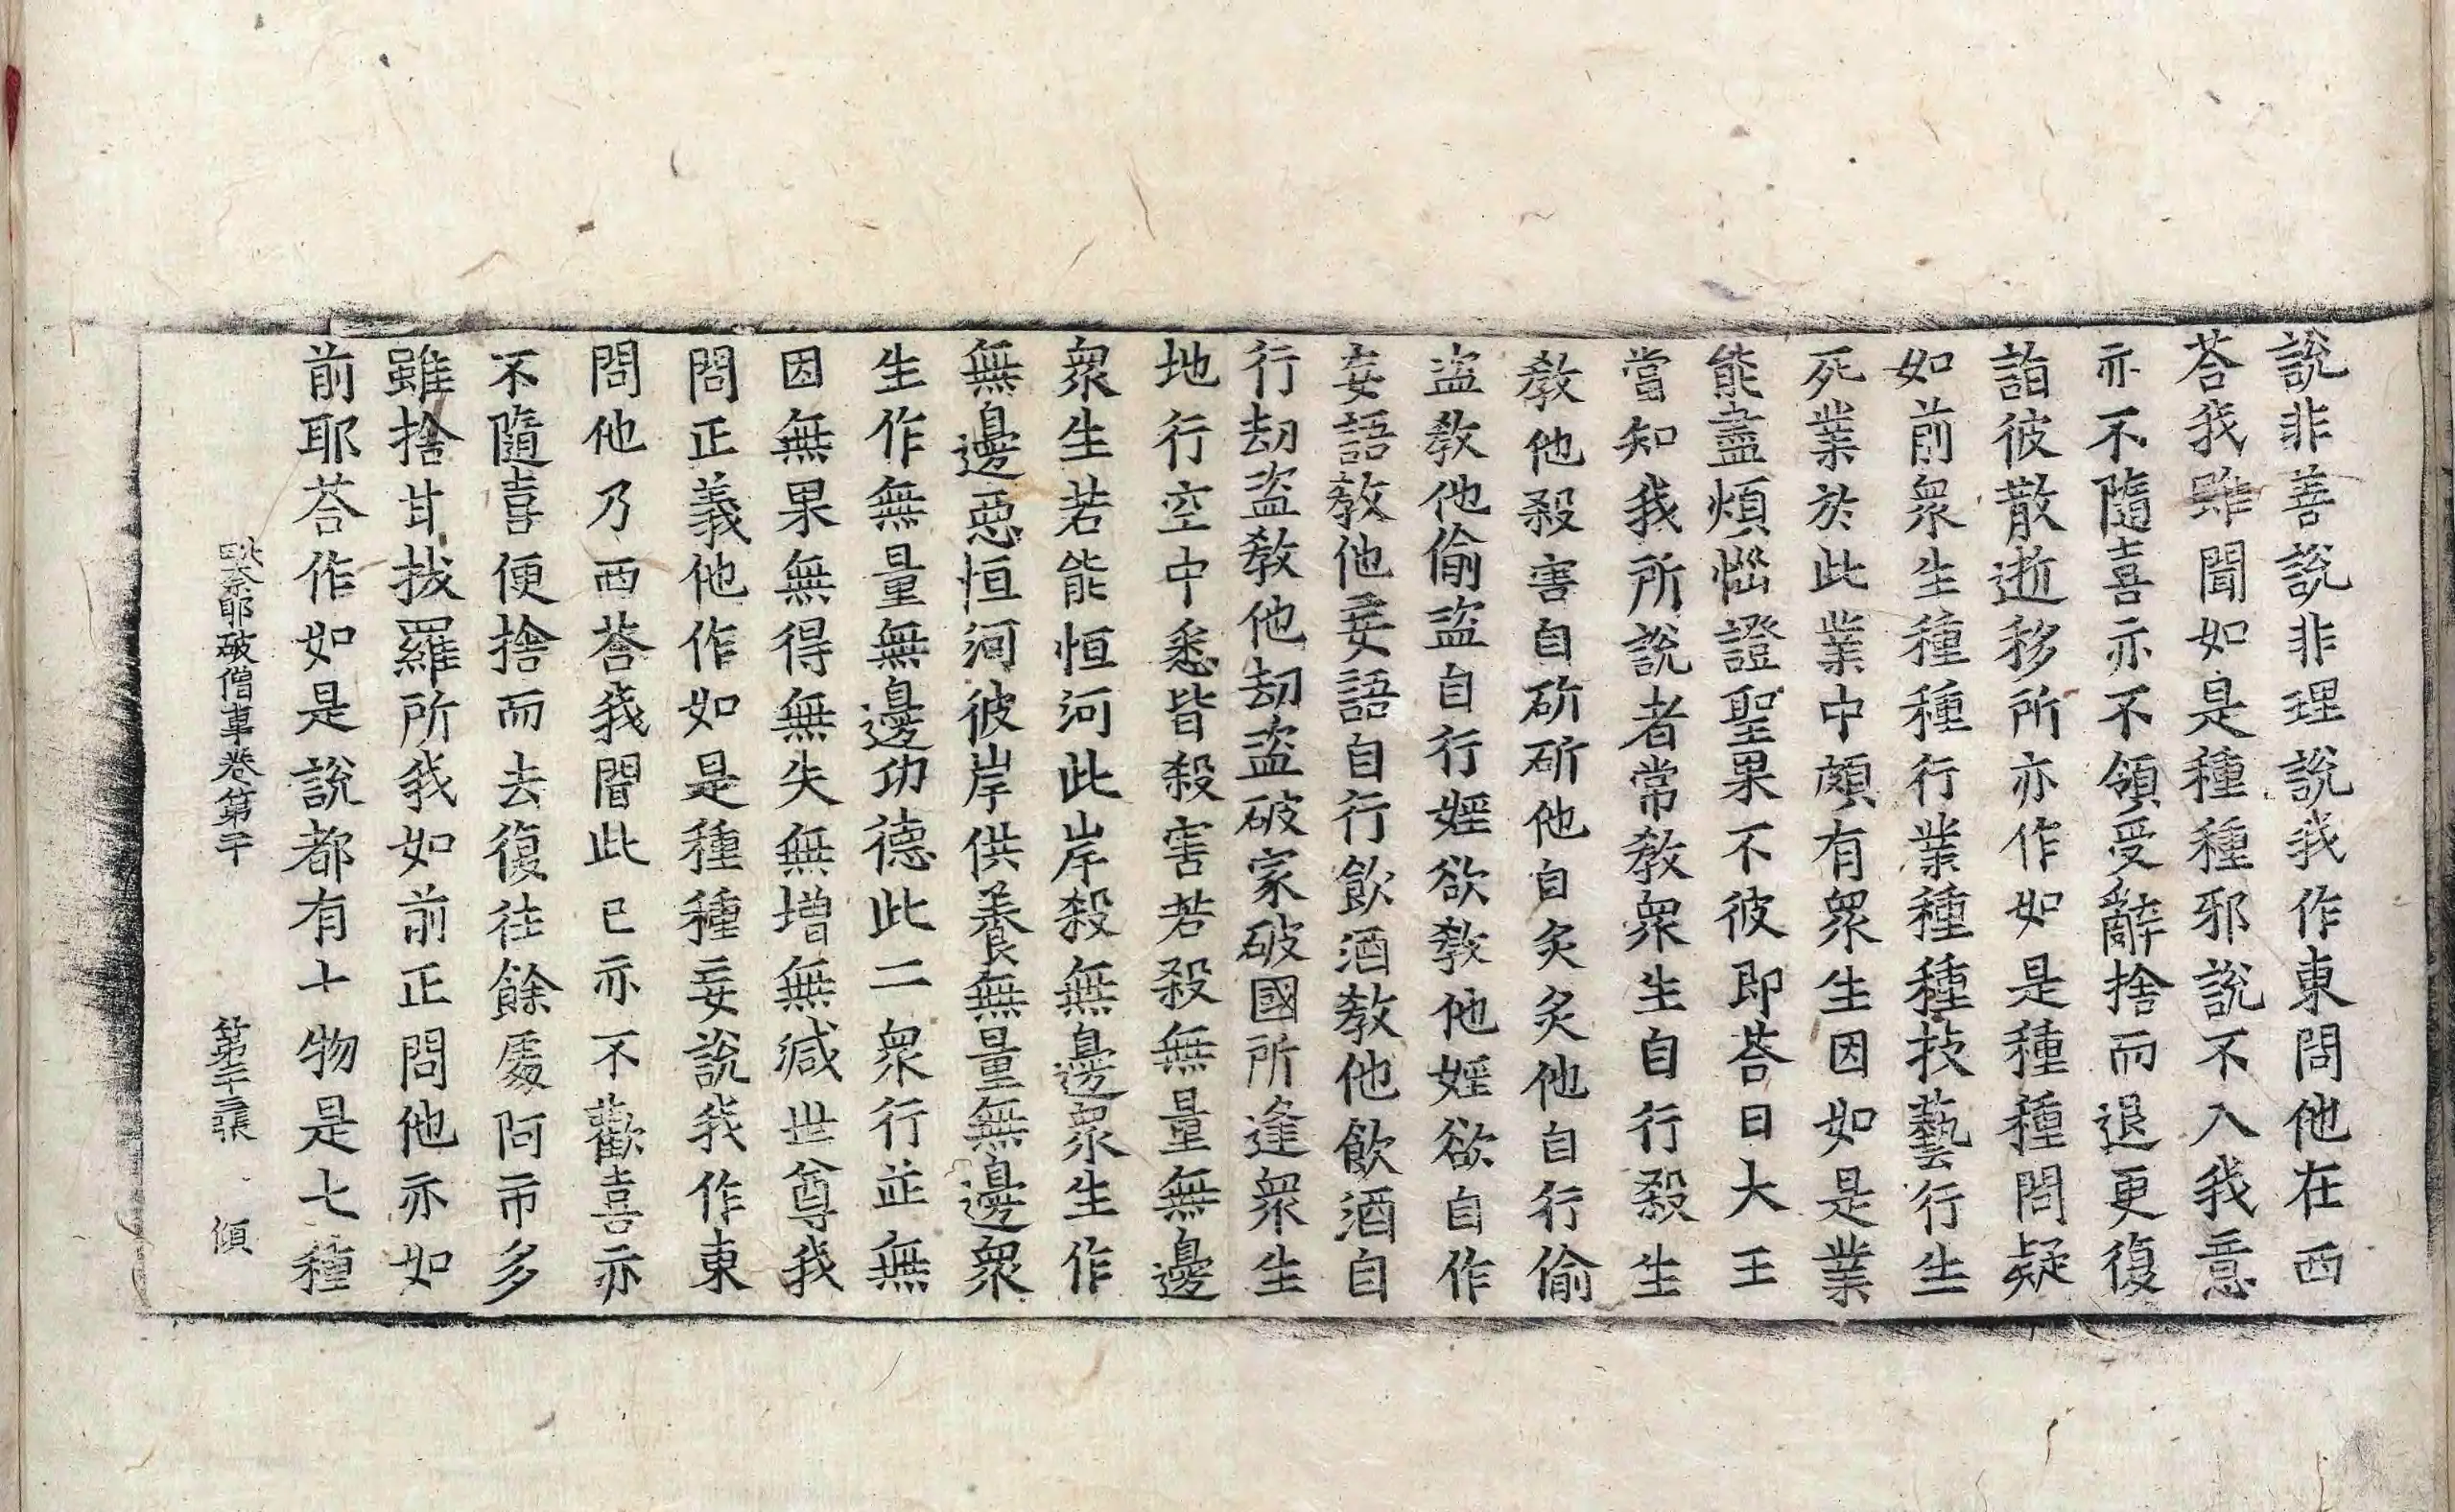 說非善說非理說我作東問他在西
荅我雖聞如是種種邪說不入我意
亦不隨喜亦不領受辭捨而退更復
詣彼散逝移所亦作如是種種問疑
如前衆生種種行業種種技藝行生
死業於此業中頗有衆生因如是業
能盡煩惱證聖果不彼即荅曰大王
當知我所說者常教衆生自行殺生
教他殺害自斫斫他自炙炙他自行偷
盜教他偷盜自行婬欲教他婬欲自作
妄語教他妄語自行飲酒教他飲酒自
行劫盜教他劫盜破家破國所逢衆生
地行空中悉皆殺害若殺無量無邊
衆生若能恒河此岸殺無邊衆生作
無邊惡恒河彼岸供養無量無邊衆
生作無量無邊功德此二衆行並無
因無果無得無失無增無減世尊我
問正義他作如是種種妄說我作東
問他乃西荅我聞此已亦不歡喜亦
不隨喜便捨而去復往餘處阿市多
雖捨甘拔羅所我如前正問他亦如
前耶荅作如是說都有十物是七種
毗奈耶破僧事卷第二十　第二十三張　傾